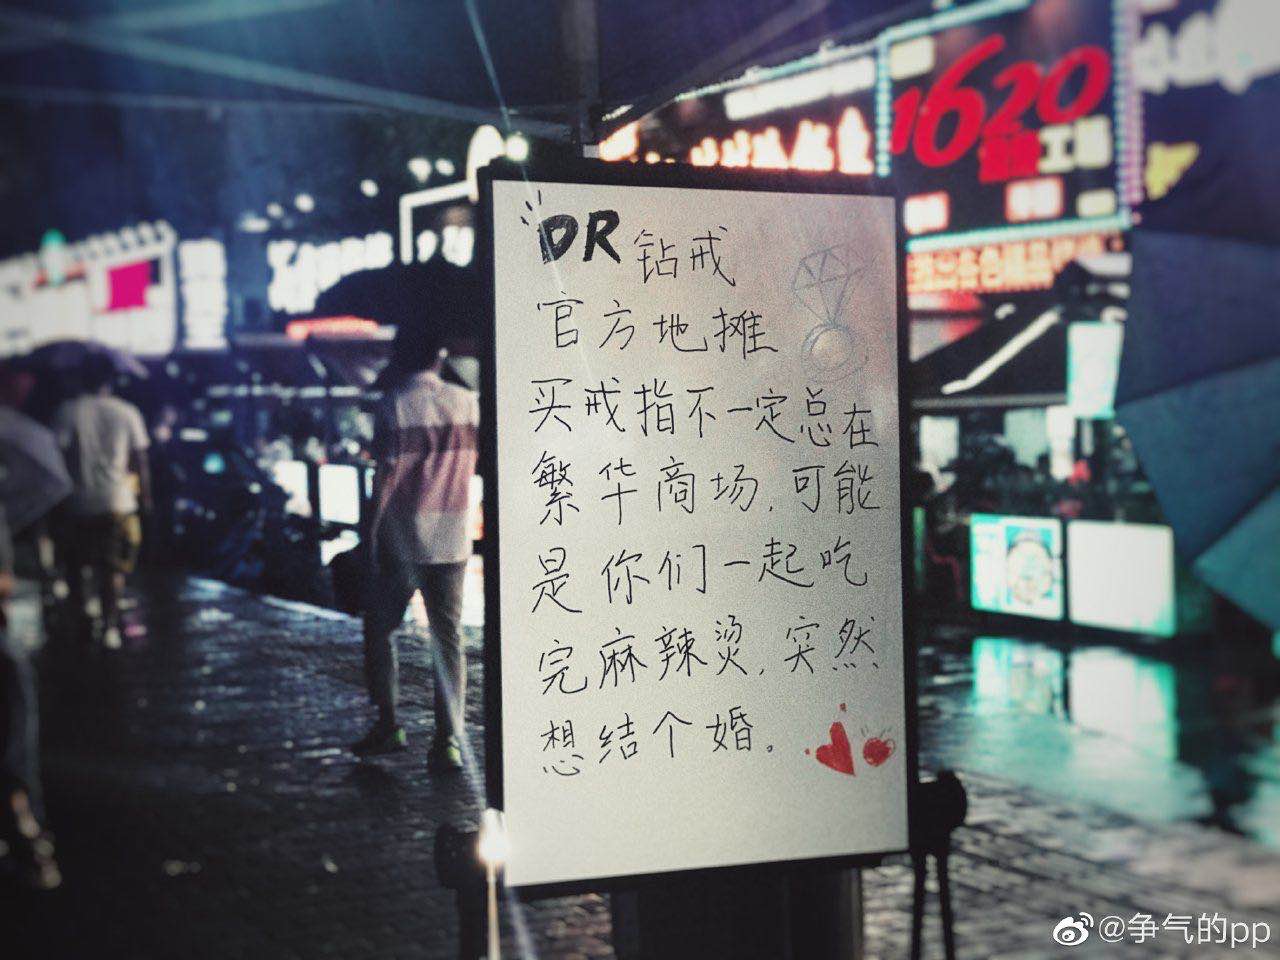 DR 钻戒
官方地摊
买戒指不一定总在
繁华商场,可能
是你们一起吃
完麻辣烫,突然
想结个婚。
1620
@争气的pp